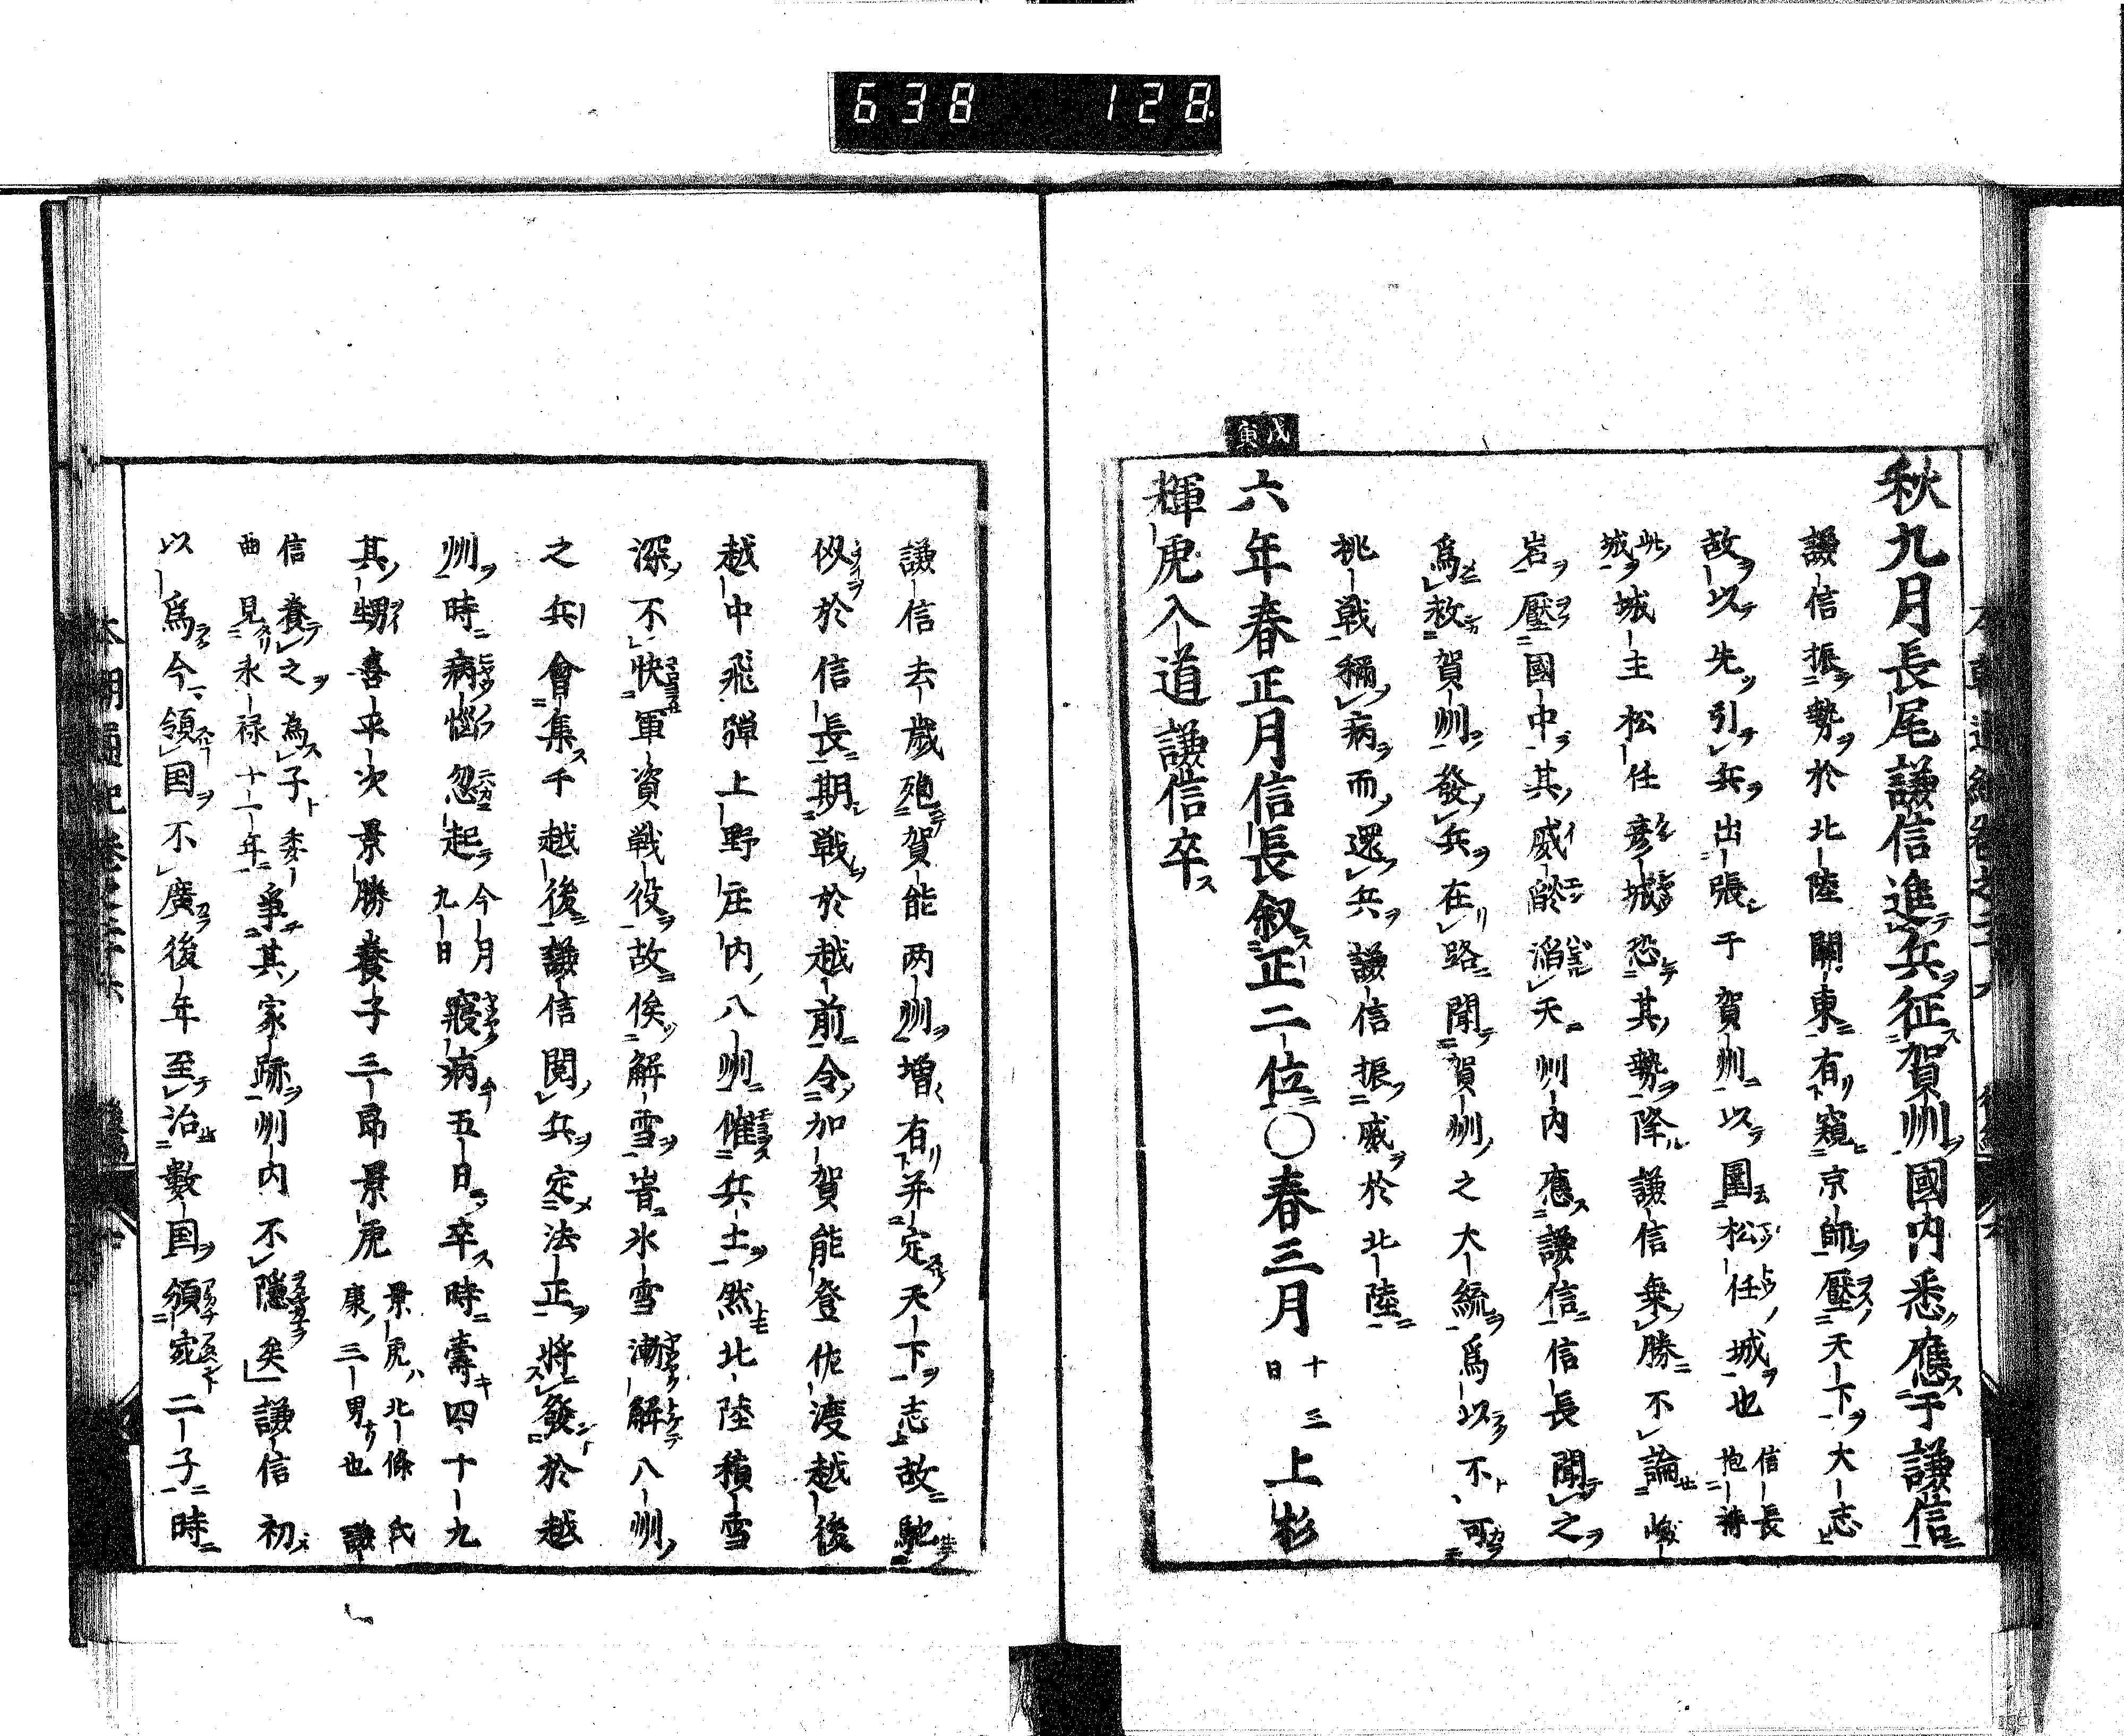 638 128
秋九月長尾謙信進兵征賀州國内悉應于謙信
謙信振勢於北陸關東有窺京師壓天下大志
故以先引兵出張于賀州以圍松任城也信長抱
此城城主松任彦城恐其勢降謙信乗勝不論嶮
岩壓國中其威 滔天州内應謙信信長聞之
爲救賀州發兵在路聞賀州之大綂爲以不可
挑戦稱病而還兵謙信振威於北陸
戊寅
六年春正月信長叙正二位〇春三月十三日上杉
輝虎入道謙信卒ス
謙信去歳 賀能两州増有并定天下志故馳
 於信長期戦於越前令加賀能登佐渡越後
越中飛彈上野庄内八州催兵士然北陸積雪
深不快軍資戦役故俟解雪皆氷雪漸解八州
之兵會集千越後謙信閲兵定法正將發於越
州時病惱忽起今月九日寢病五日卒時壽四十九
其甥喜平次景勝養子三郎景虎景虎ハ北條氏康三男也謙
信養之為子委曲見永禄十一年爭其家跡州内不隱矣謙信初
以爲今領国不廣後年至治數国頒宛二子時